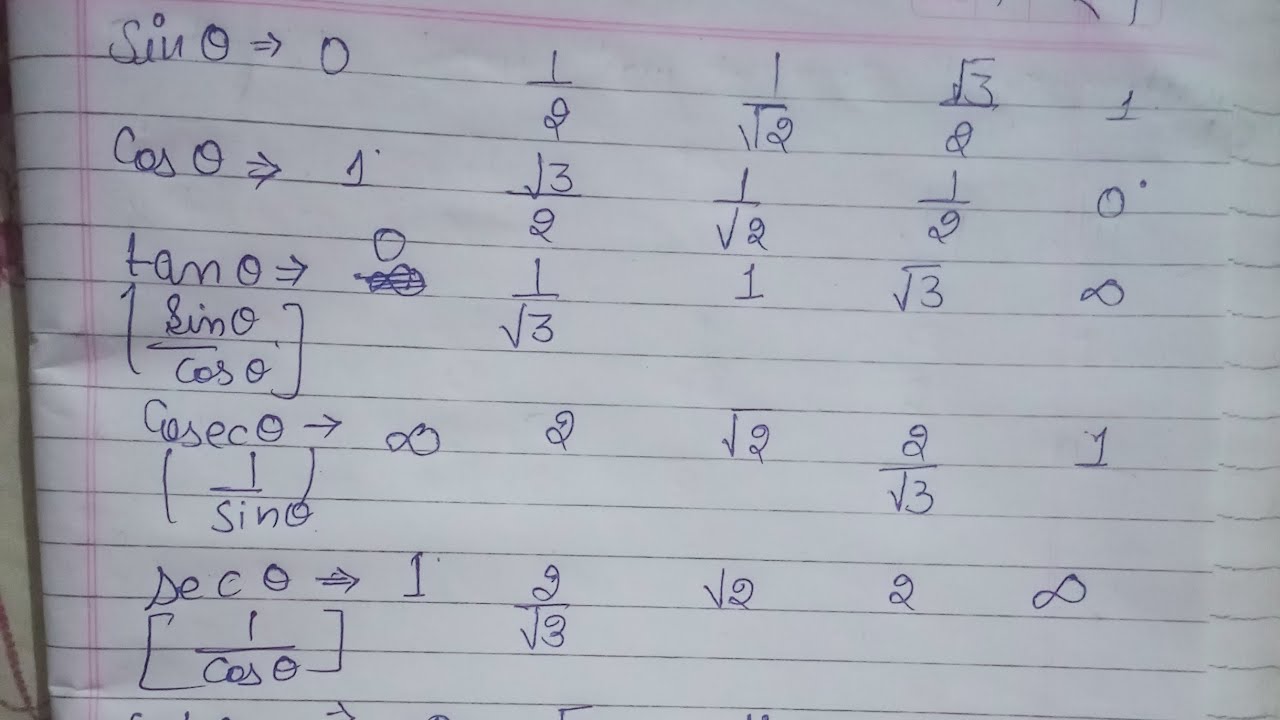 Sin θ ⇒ 0 1/2 1/√2 √3/2 1
Cos θ ⇒ 1 √3/2 1/√2 1/2 0
tan θ ⇒ 0 1/√3 1 √3 ∞
[sin θ/cos θ]
Cosec θ → ∞ 2 √2 2/√3 1
(1/sin θ)
sec θ ⇒ 1 2/√3 √2 2 ∞
[1/cos θ]